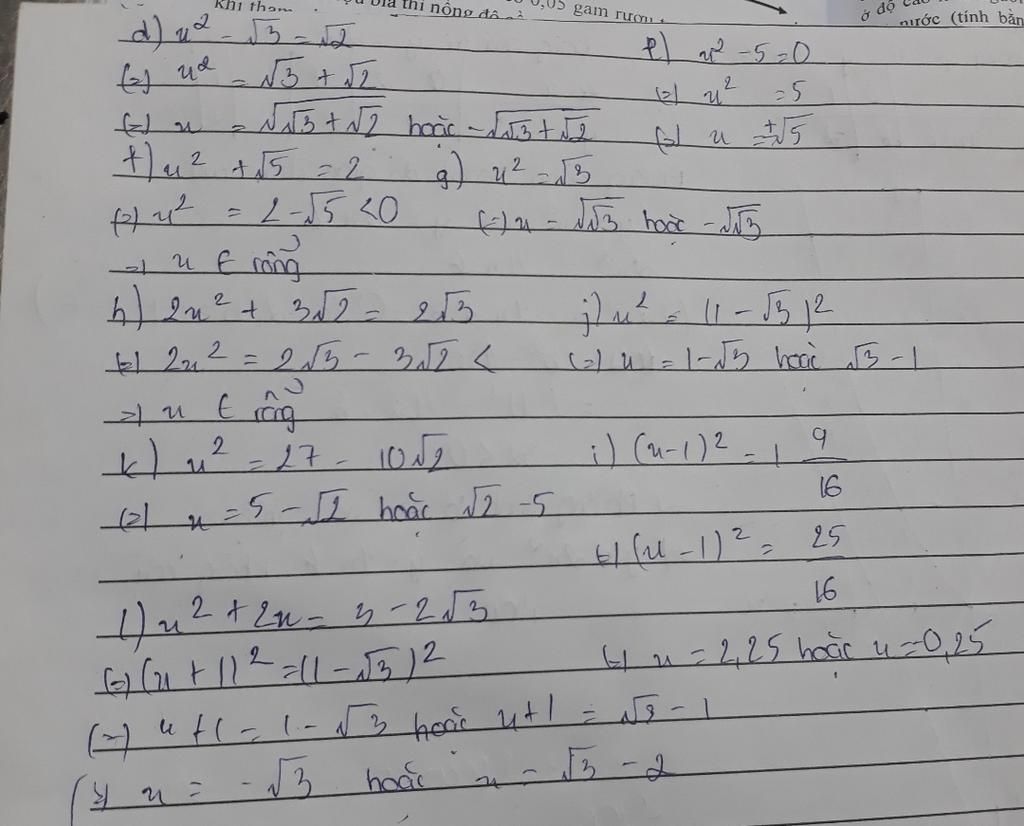 Khi tham
bia thì nồng độ
0,05 gam rượu
ở độ cao
nước (tính bằn
d) x² - √3 = √2
(=) x² = √3 + √2
(=) x = √(√3 + √2) hoặc -√(√3 + √2)
e) x² - 5 = 0
(=) x² = 5
(=) x = ±√5
f) x² + √5 = 2
(=) x² = 2 - √5 < 0
=) x ∈ rỗng
g) x² = √3
(=) x = √√3 hoặc -√√3
h) 2x² + 3√2 = 2√3
(=) 2x² = 2√3 - 3√2 <
=) x ∈ rỗng
j) x² = (1 - √3)²
(=) x = 1 - √3 hoặc √3 - 1
k) x² = 27 - 10√2
(=) x = 5 - √2 hoặc √2 - 5
i) (x-1)² = 1 9/16
(=) (x - 1)² = 25/16
(=) x = 2,25 hoặc x = -0,25
l) x² + 2x = 3 - 2√3
(=) (x + 1)² = (1 - √3)²
(=) x + 1 = 1 - √3 hoặc x + 1 = √3 - 1
(=) x = -√3 hoặc x = √3 - 2